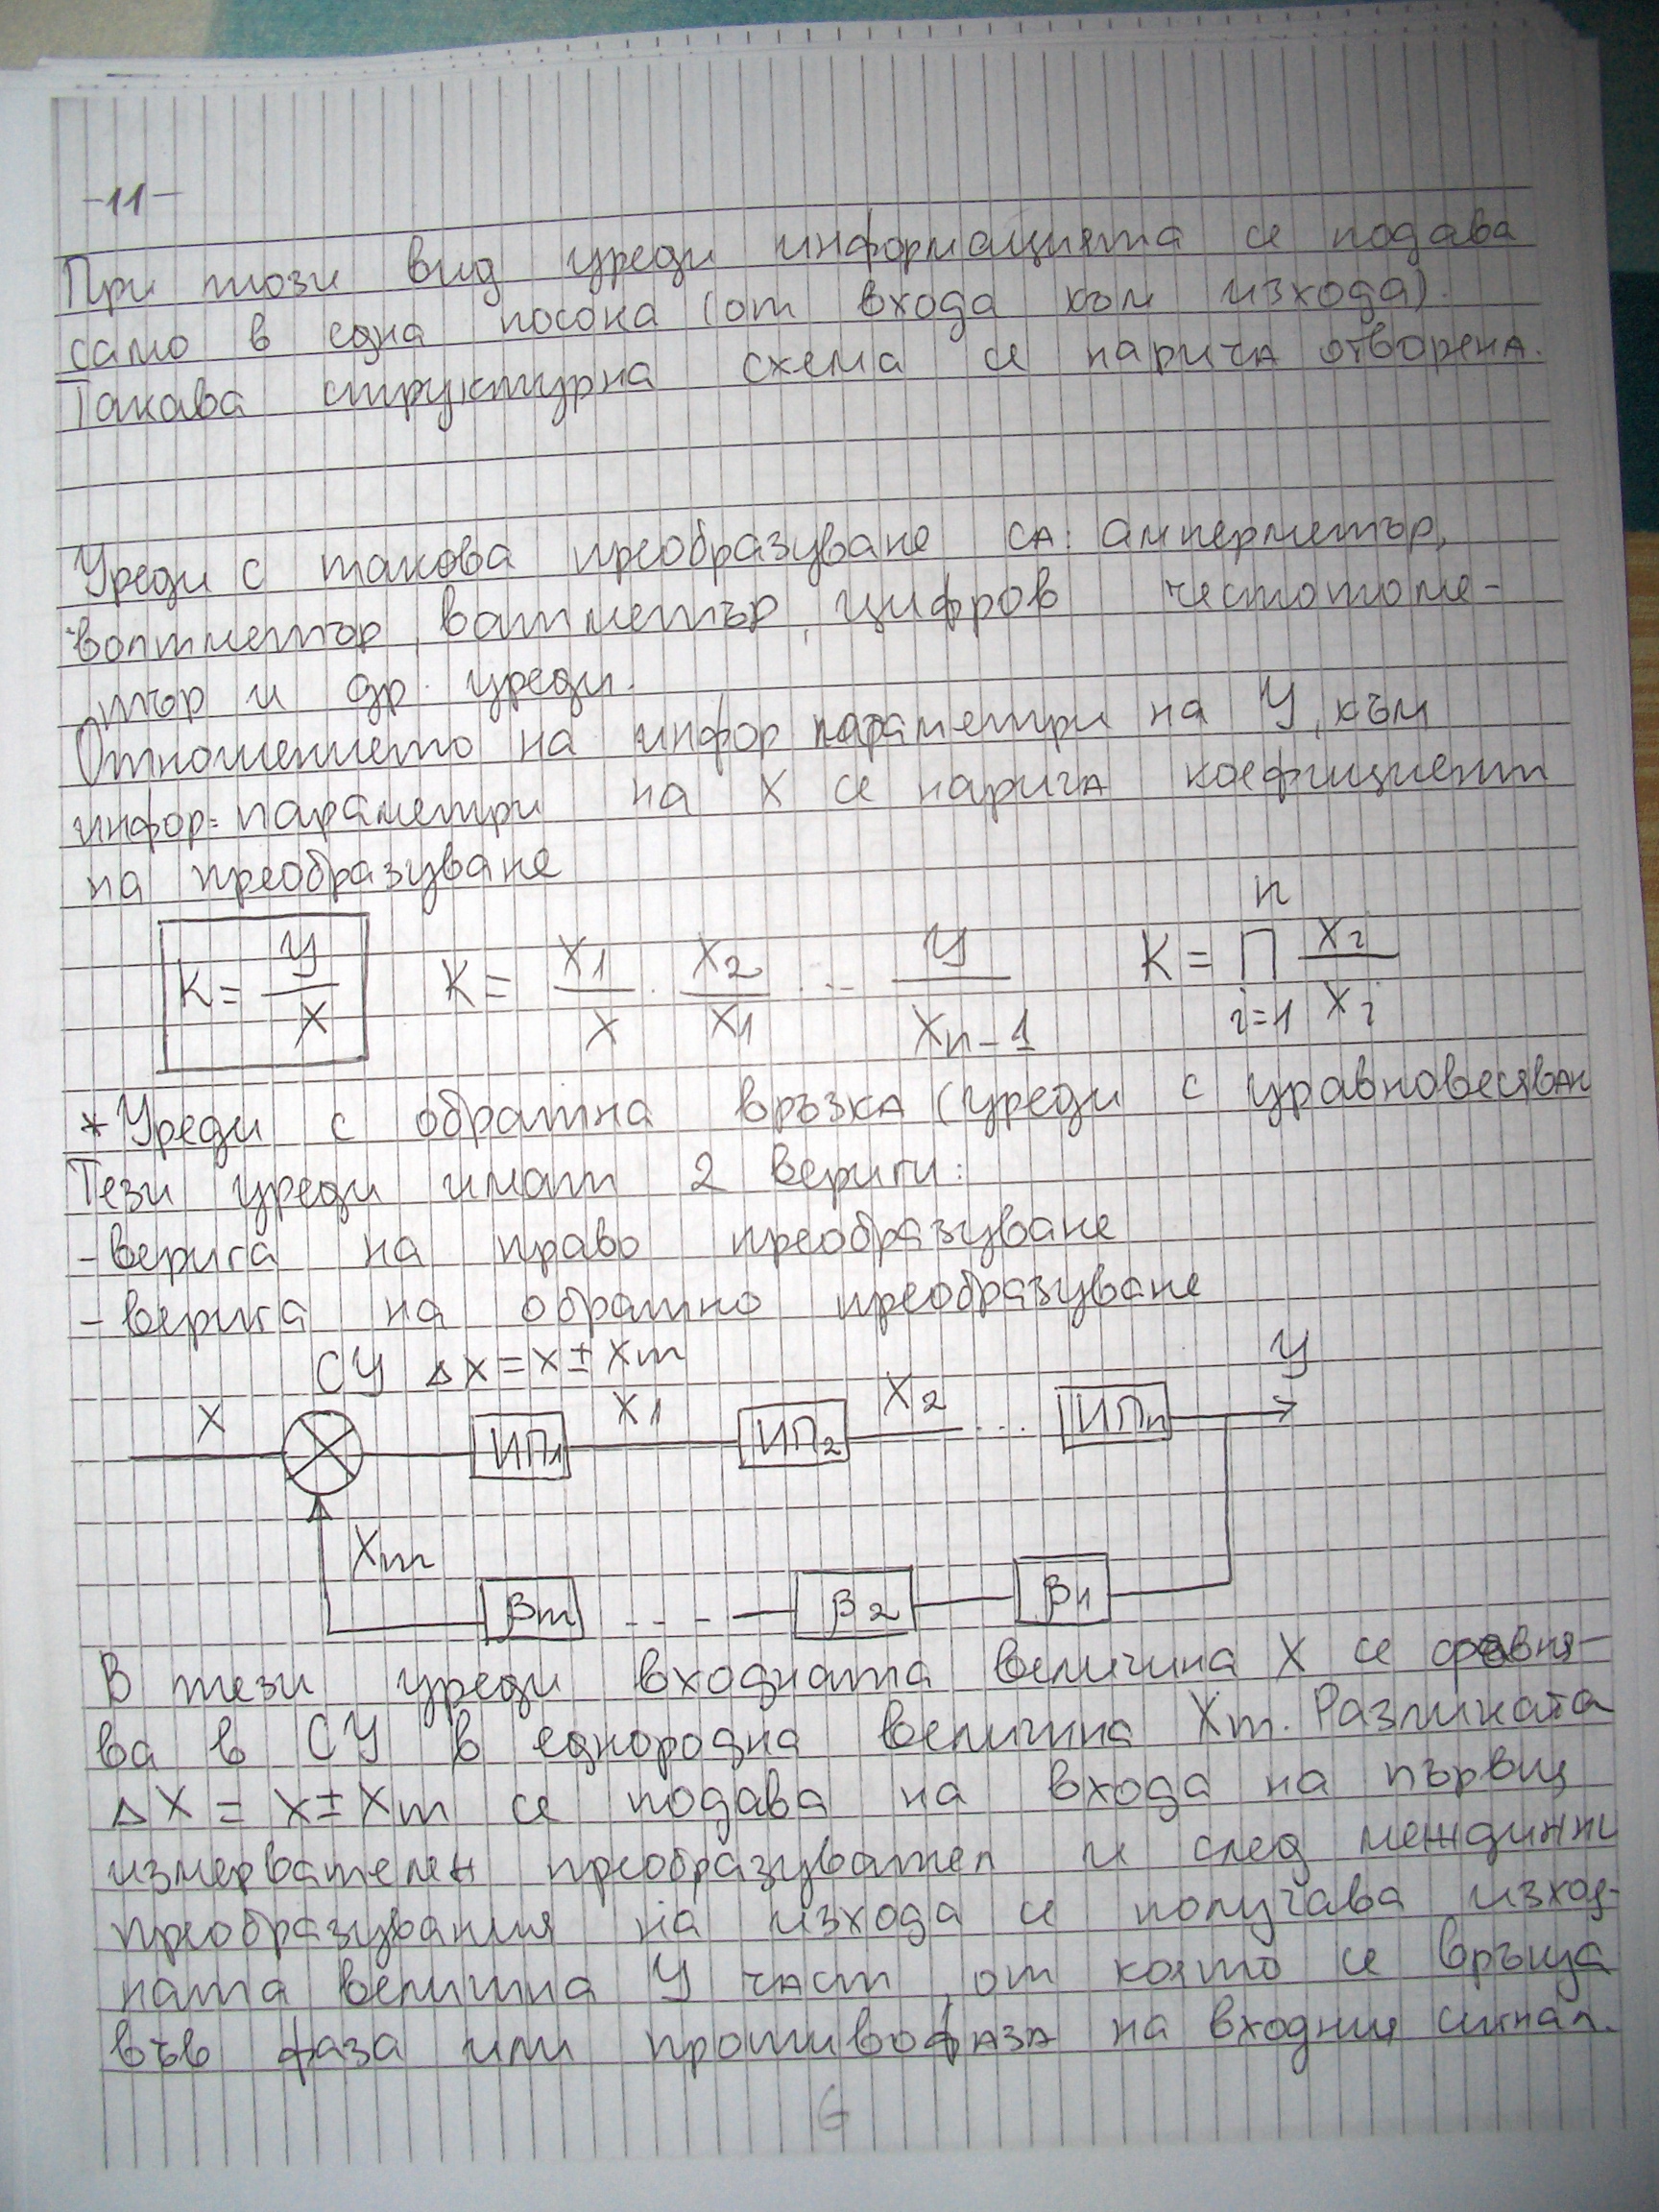 -11-
При този вид уреди информацията се подава
само в една посока (от входа към изхода).
Такава структурна схема се нарича отворена.
Уреди с такова преобразуване са: амперметър,
волтметър, ватметър, цифров честотоме-
тър и др. уреди.
Отношението на инфор параметри на У, към
инфор. параметри на Х се нарича коефициент
на преобразуване
K = У/X   K = X1/X · X2/X1 · · · У/Xn-1   K = n ∏ i=1 Xi/Xi
* Уреди с обратна връзка (уреди с уравновесяван
Тези уреди имат 2 вериги:
- верига на право преобразуване
- верига на обратно преобразуване
СУ ΔX = X ± Xm
X ИП1 X1 ИП2 X2 ... ИПn У
Xm
βm ---- β2 β1
В тези уреди входната величина X се сравня-
ва в СУ в еднородна величина Xm. Разликата
ΔX = X ± Xm се подава на входа на първия
измервателен преобразувател и след междинни
преобразувания на изхода се получава изход-
ната величина У част, от която се връща
във фаза или противофаза на входния сигнал.
6